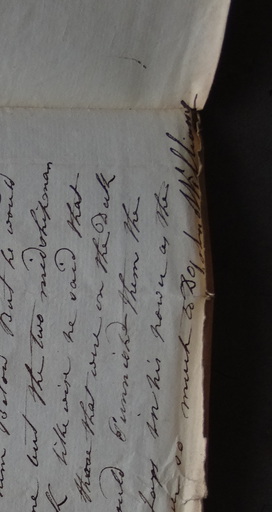 him below But he would
me but the two midshipman
k like wise he said that
those that were on the Deck
ould Punnished them the
lays in his power as the
so much to Do